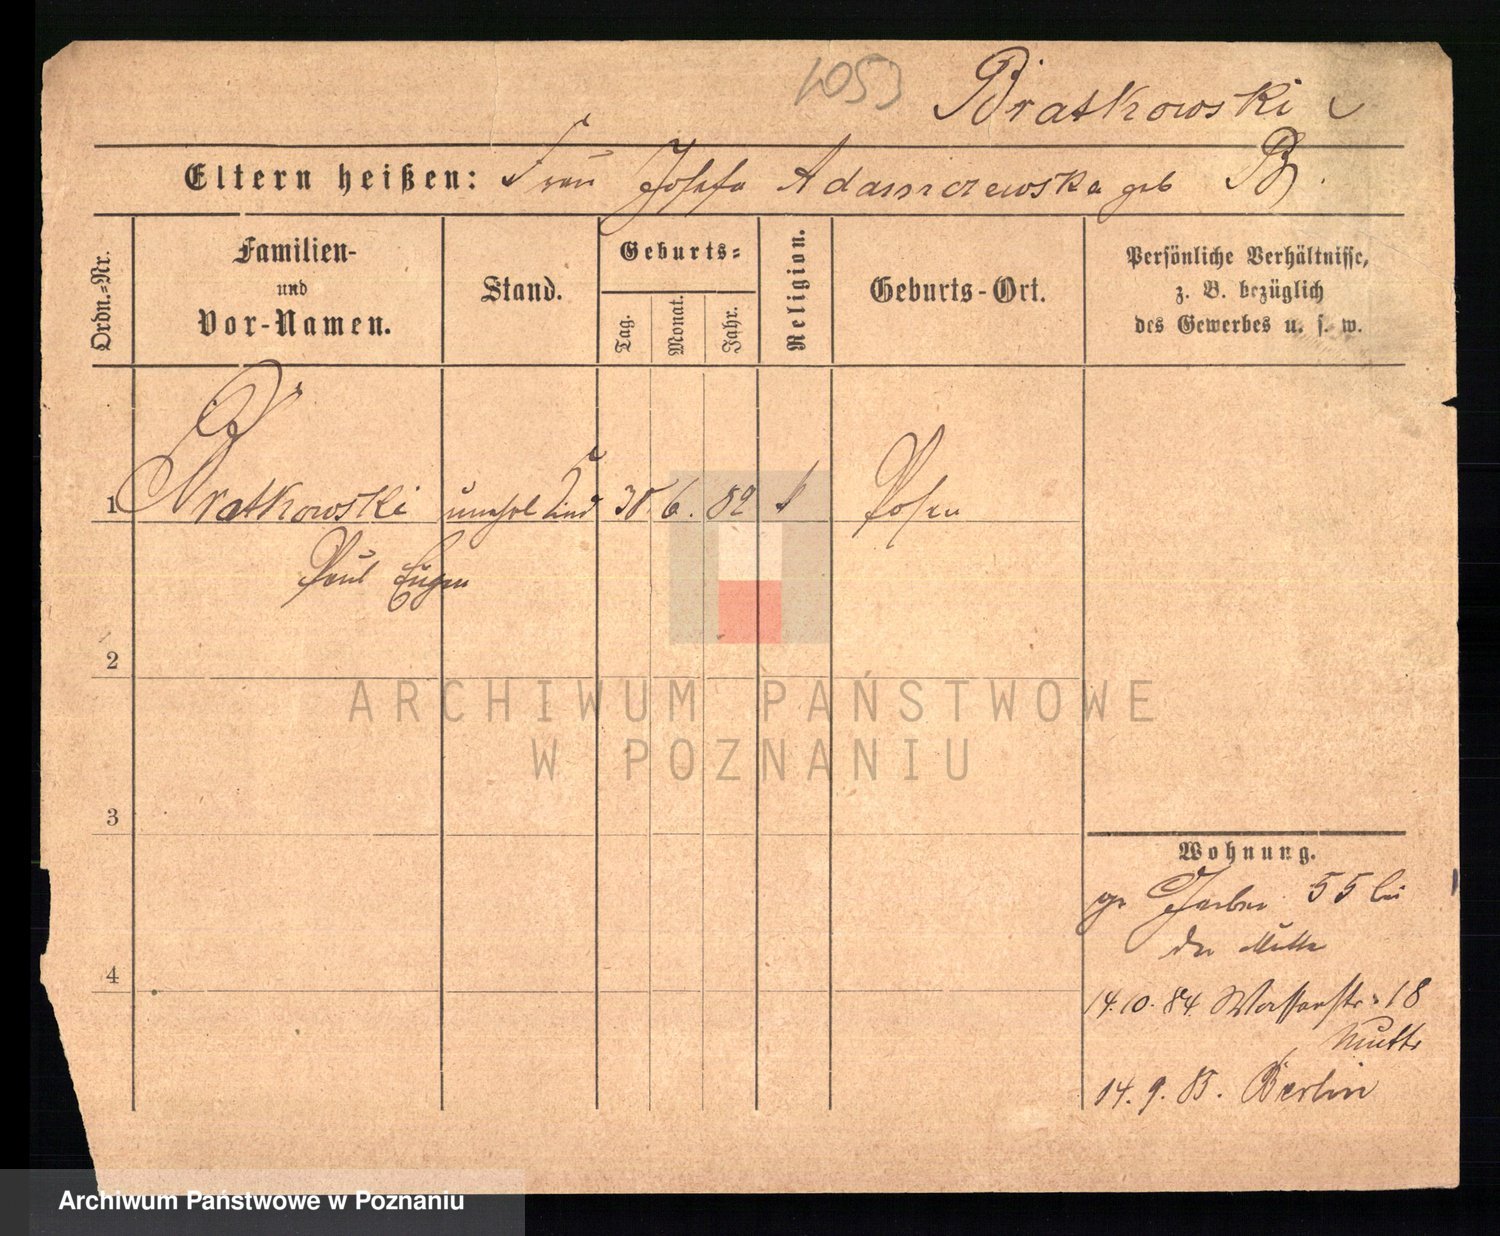 1053
Bratkowski
Eltern heißen: Frau Josefa Adamczewska geb B.
Ordn.-Nr.
Familien-
und
Vor-Namen.
Stand.
Geburts-
Tag.
Monat.
Jahr.
Religion.
Geburts-Ort.
Persönliche Verhältnisse,
z. B. bezüglich
des Gewerbes u. s. w.
1 Bratkowski unehel Kind 30. 6. 82 Posen
Paul Eugen
2
3
4
Wohnung.
gr Gerber 55 bei
der Mutter
14.10.84 Wasserstr. 18
Mutter
14. 9. 85. Berlin
ARCHIWUM PAŃSTWOWE
W POZNANIU
Archiwum Państwowe w Poznaniu